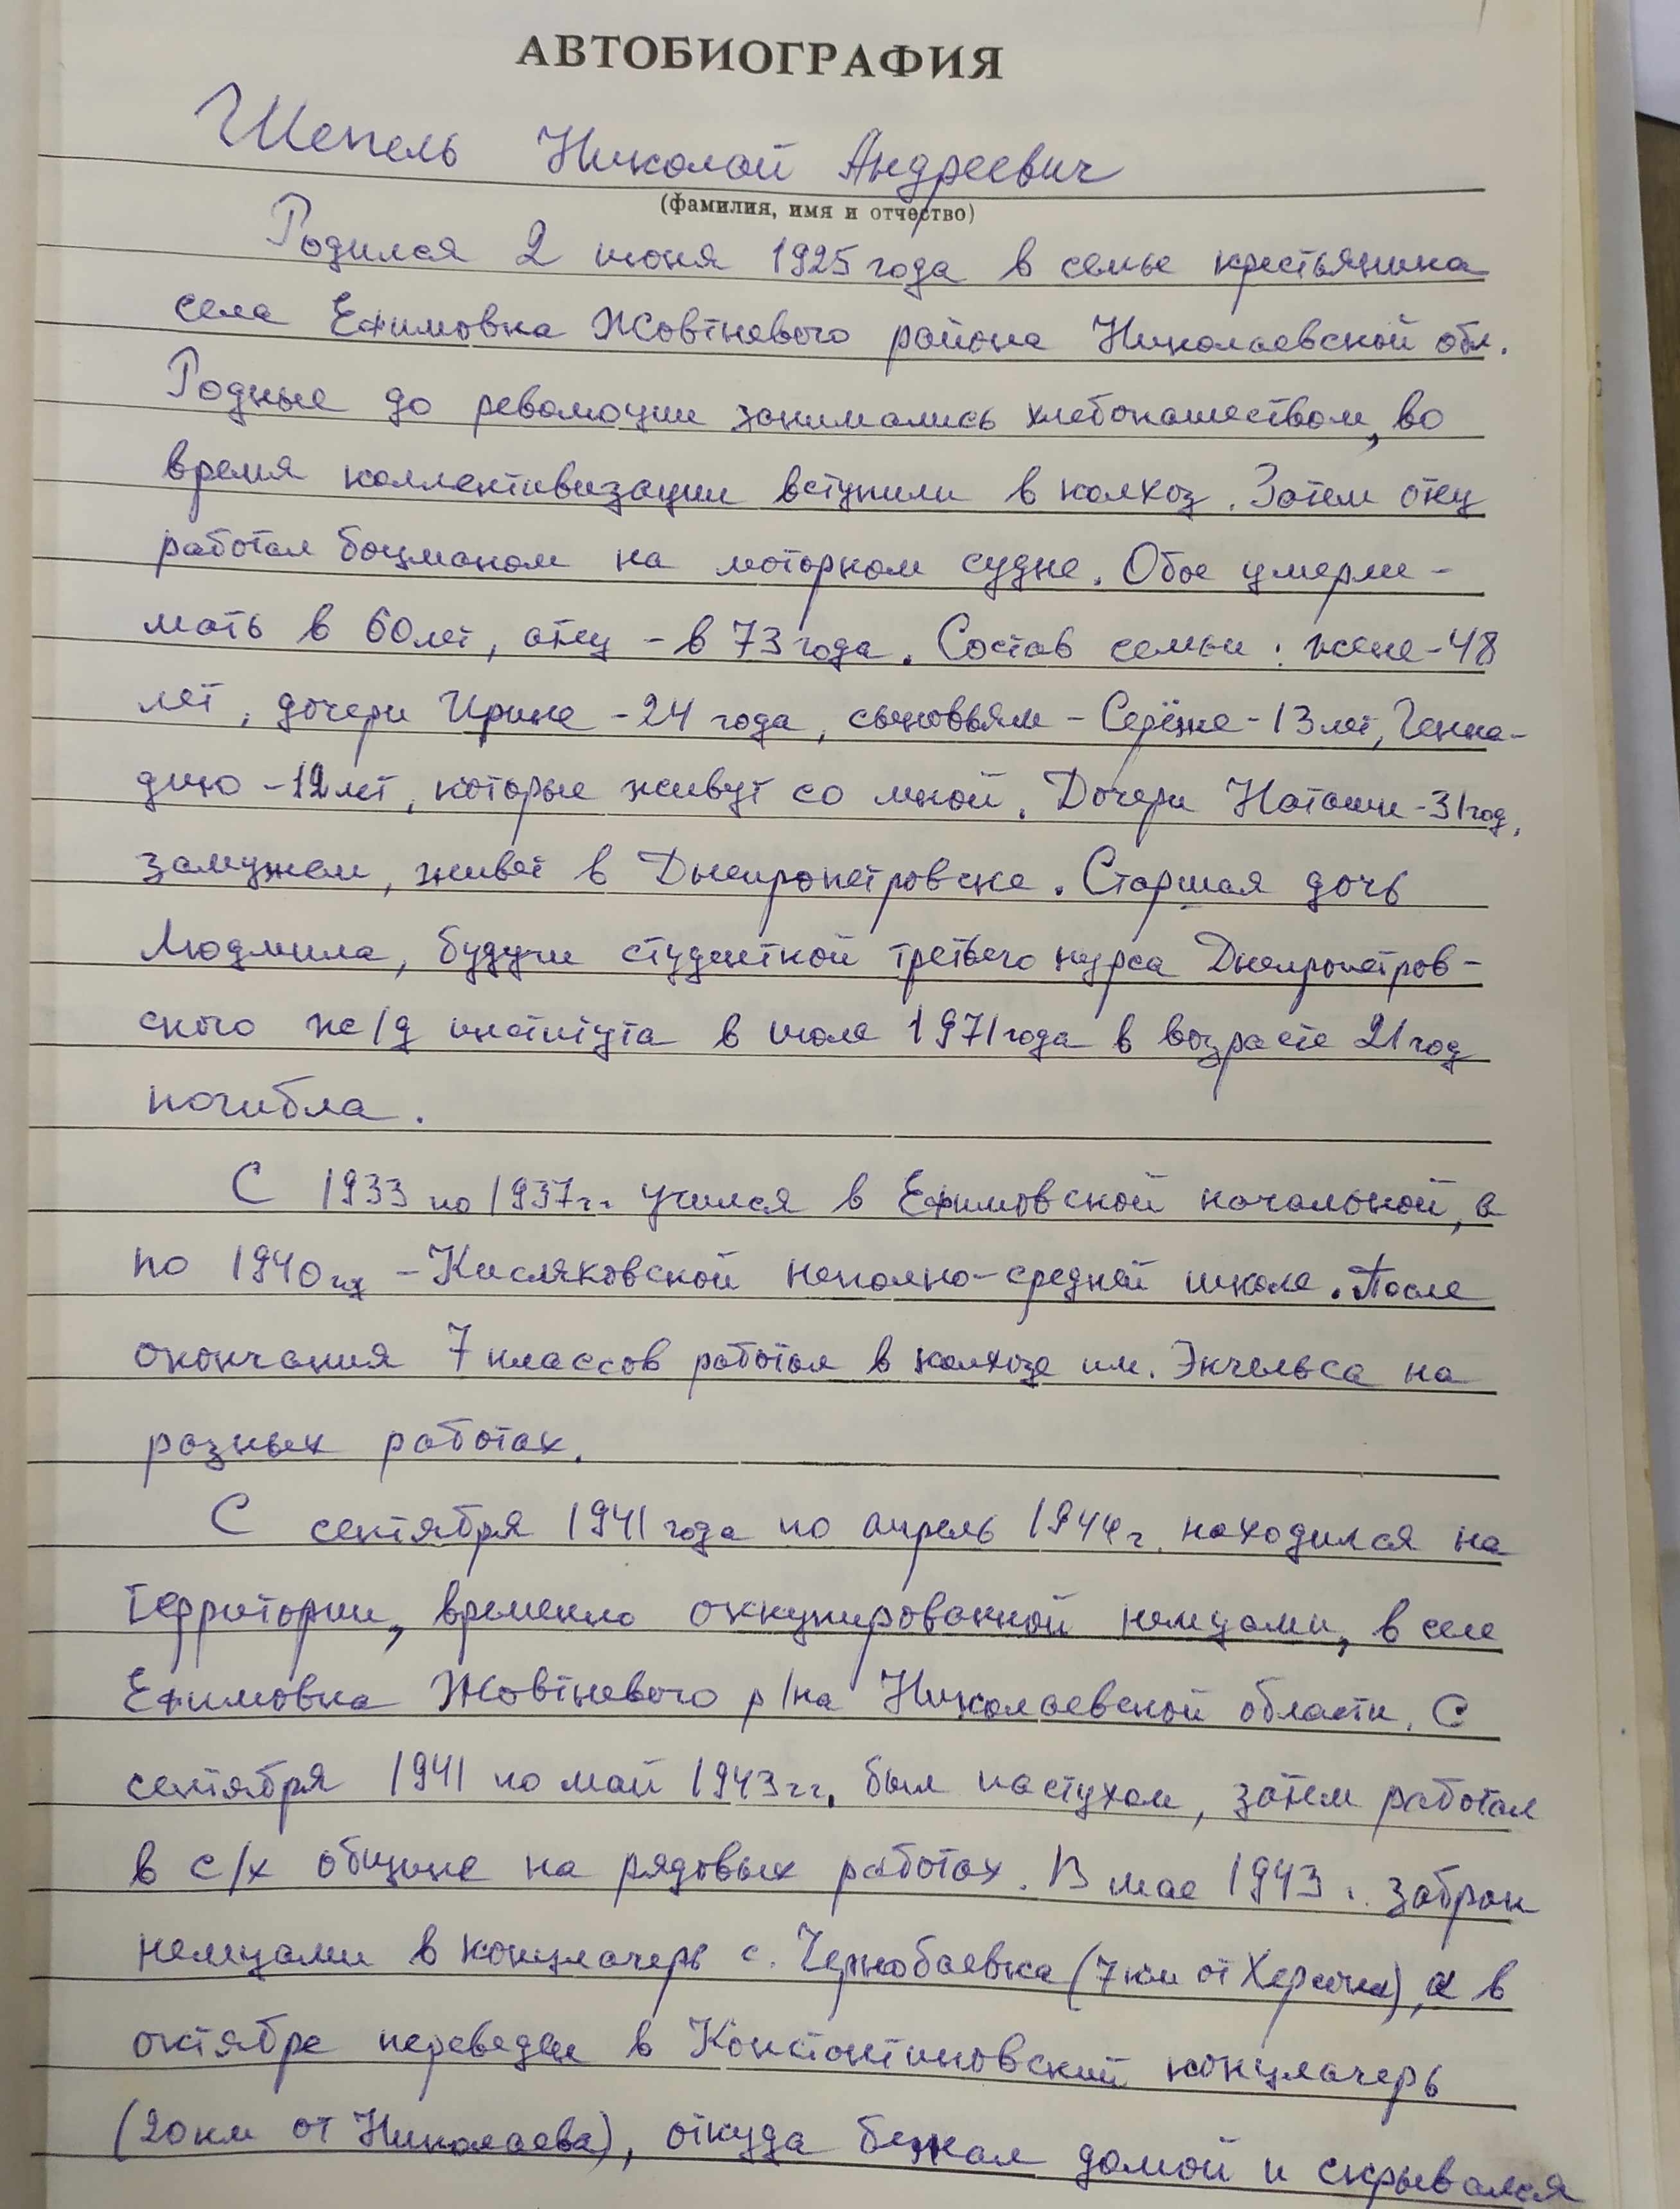 АВТОБИОГРАФИЯ
Шепель Николай Андреевич
(фамилия, имя и отчество)
Родился 2 июня 1925 года в семье крестьянина
села Ефимовка Жовтневого района Николаевской обл.
Родные до революции занимались хлебопашеством, во
время коллективизации вступили в колхоз. Затем отец
работал боцманом на моторном судне. Обое умерли -
мать в 60 лет, отец - в 73 года. Состав семьи: жене - 48
лет, дочери Ирине - 24 года, сыновьям - Серёже - 13 лет, Генна-
дию - 12 лет, которые живут со мной. Дочери Наташи - 31 год,
замужем, живёт в Днепропетровске. Старшая дочь
Людмила, будучи студенткой третьего курса Днепропетров-
ского ж/д института в июле 1971 года в возрасте 21 год
погибла.
С 1933 по 1937 гг. учился в Ефимовской начальной, а
по 1940 - Кисляковской неполно-средней школе. После
окончания 7 классов работал в колхозе им. Энгельса на
разных работах.
С сентября 1941 года по апрель 1944 г. находился на
территории, временно оккупированной немцами, в селе
Ефимовка Жовтневого р/на Николаевской области. С
сентября 1941 по май 1943 гг. был пастухом, затем работал
в с/х общине на рядовых работах. В мае 1943 г. забран
немцами в концлагерь с. Чернобаевка (7 км от Херсона), а в
октябре переведен в Константиновский концлагерь
(20 км от Николаева), откуда бежал домой и скрывался